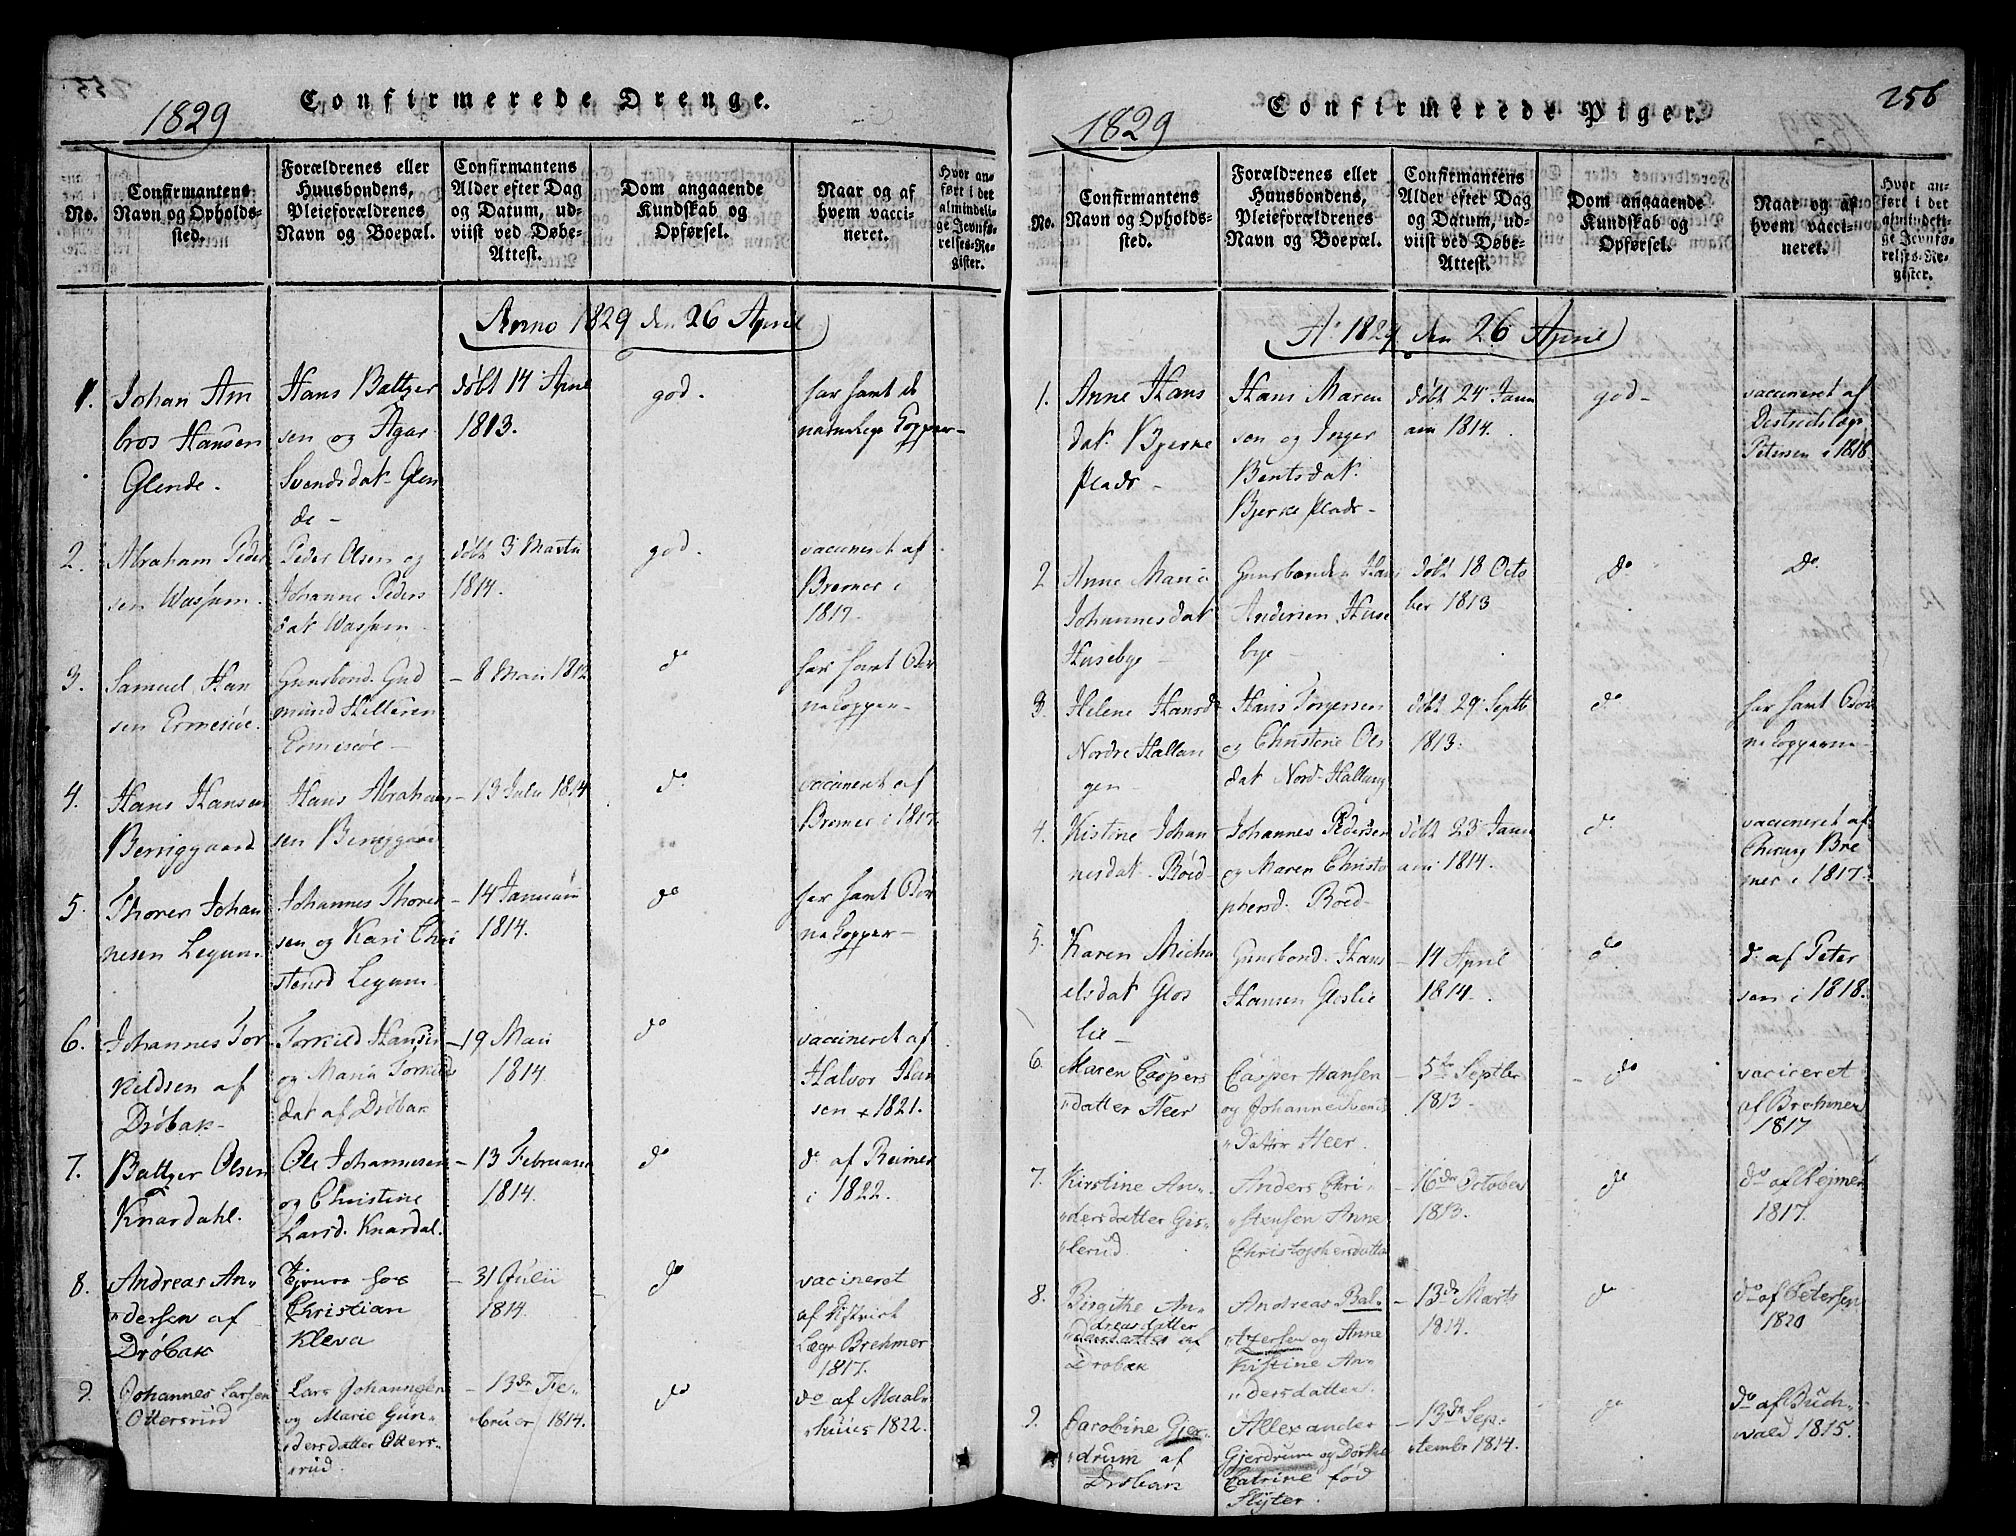 Confirmerede Drenge.
1829
No.
Confirmantens
Navn og Opholds-
sted.
Forældrenes eller
Huusbondens,
Pleieforældrenes
Navn og Boepæl.
Confirmantens
Alder efter Dag
og Datum, ud-
viist ved Døbe-
Attest.
Dom angaaende
Kundskab og
Opførsel.
Naar og af
hvem vacci-
neret.
Hvor an-
ført i det
almindeli-
ge Jevnfø-
relses-Re-
gister.
Anno 1829 den 26 April
1.
Johan Am
bros Hansen
Glende.
Hans Baltzer
sen og Agar
Svendsdat Glen
de
døbt 14 April
1813.
god.
har havt de
naturlige Copper
2.
Abraham Peder
sen Waskum.
Peder Olsen og
Johanne Peders
dat Waskum
døbt 3 Martii
1814.
god.
vaccineret af
Bremer i
1817.
3.
Samuel Han
sen Ermesøe.
Huusbond. Gud
mund Killeren
Ermesøe
8 Maii 1812
do
har havt Bør
ne Copper
4.
Hans Hansen
Berriggaard
Hans Abraham
sen Berriggaard
13 Julii 1814
do
vaccineret af
Bremer i 1817.
5.
Thorer Johan
nesen Legum
Johannes Thorer
sen og Kari Chri
stensd Legum
14 Januarii
1814.
do
har havt Bør
ne Copper
6.
Johannes Tor
kildsen af
Drøbak
Torkild Hansen
og Maria Torkilds
dat af Drøbak
19 Maii
1814
do
vaccineret af
Halvor Han
sen 1821.
7.
Baltzer Olsen
Knardahl.
Ole Johannesen
og Christine
Larsd. Knardal.
13 Februarii
1814.
do
do af Reimer
i 1822.
8.
Andreas An-
dersen af
Drøbak
Tjener hos
Christian
Kleva
31 Julii
1814.
do
vacineret
af District
Læge Brehmer
1817.
9.
Johannes Larsen
Ottersrud
Lars Johannsen
og Marie Gun-
dersdatter Otters-
rud.
13de Fe-
bruer 1814.
do
do af
1822.
Confirmerede Piger.
256
1829
No.
Confirmantens
Navn og Opholds-
sted.
Forældrenes eller
Huusbondens,
Pleieforældrenes
Navn og Boepæl.
Confirmantens
Alder efter Dag
og Datum, ud-
viist ved Døbe-
Attest.
Dom angaaende
Kundskab og
Opførsel.
Naar og af
hvem vacci-
neret.
Hvor an-
ført i det
almindeli-
ge Jevnfø-
relses-Re-
gister.
Ao 1829 den 26 April
1.
Anne Hans
dat. Bjerke
plads
Hans Maren
sen og Inger
Bentsdat.
Bjerke plads
døbt 24 Janu
arii 1814.
god
vaccineret af
Destredslæge
Petersen i 1818.
2
Anne Maria
Johannesdat
Husebye
Huusbonden Hans
Andersen Huse
bye
døbt 18 Octo
ber 1813
Do
Do
3.
Helene Hansd
Nordre Hallan
gen
Hans Torgersen
og Christine Ols
dat Nord Hallang
døbt 29 Septb
1813.
do
har havt Bør
ne Copperne
4.
Kistine Johan
nesdat Røed
Johannes Pedersen
og Maren Christo
phersd. Røed
døbt 23 Janu
arii 1814.
do
vaccineret af
Chirurg Bre
mer i 1817.
5.
Karen Micha
elsdat Glos
lie
Huusbond. Hans
Hansen Gloslie
14 April
1814.
do
do af Peter
sen i 1818.
6.
Maren Caspers
datter Heer
Casper Hansen
og Johanne Svens
datter Heer.
5te Septber
1813
do
vacineret
af Brehmer
1817
7.
Kirstine An-
dersdatter Gis-
lerud.
Anders Chri-
stensen Anne
Christophersdatter
16de October
1813.
do
do af Rejmer
1817.
8.
Birgitte An-
dreasdatter
dersdatter af
Drøbak
Andreas Bal-
tzersen og Anne
Kistine An-
dersdatter.
13de Marts
1814.
do
do af Petersen
1820
9.
Carobine Gjer-
drum af
Drøbak
Allexander
Gjerdrum og Dorke
Catrine fød
Flyter.
13de Sep-
tembr 1814.
do
do af Buch-
wald 1815.